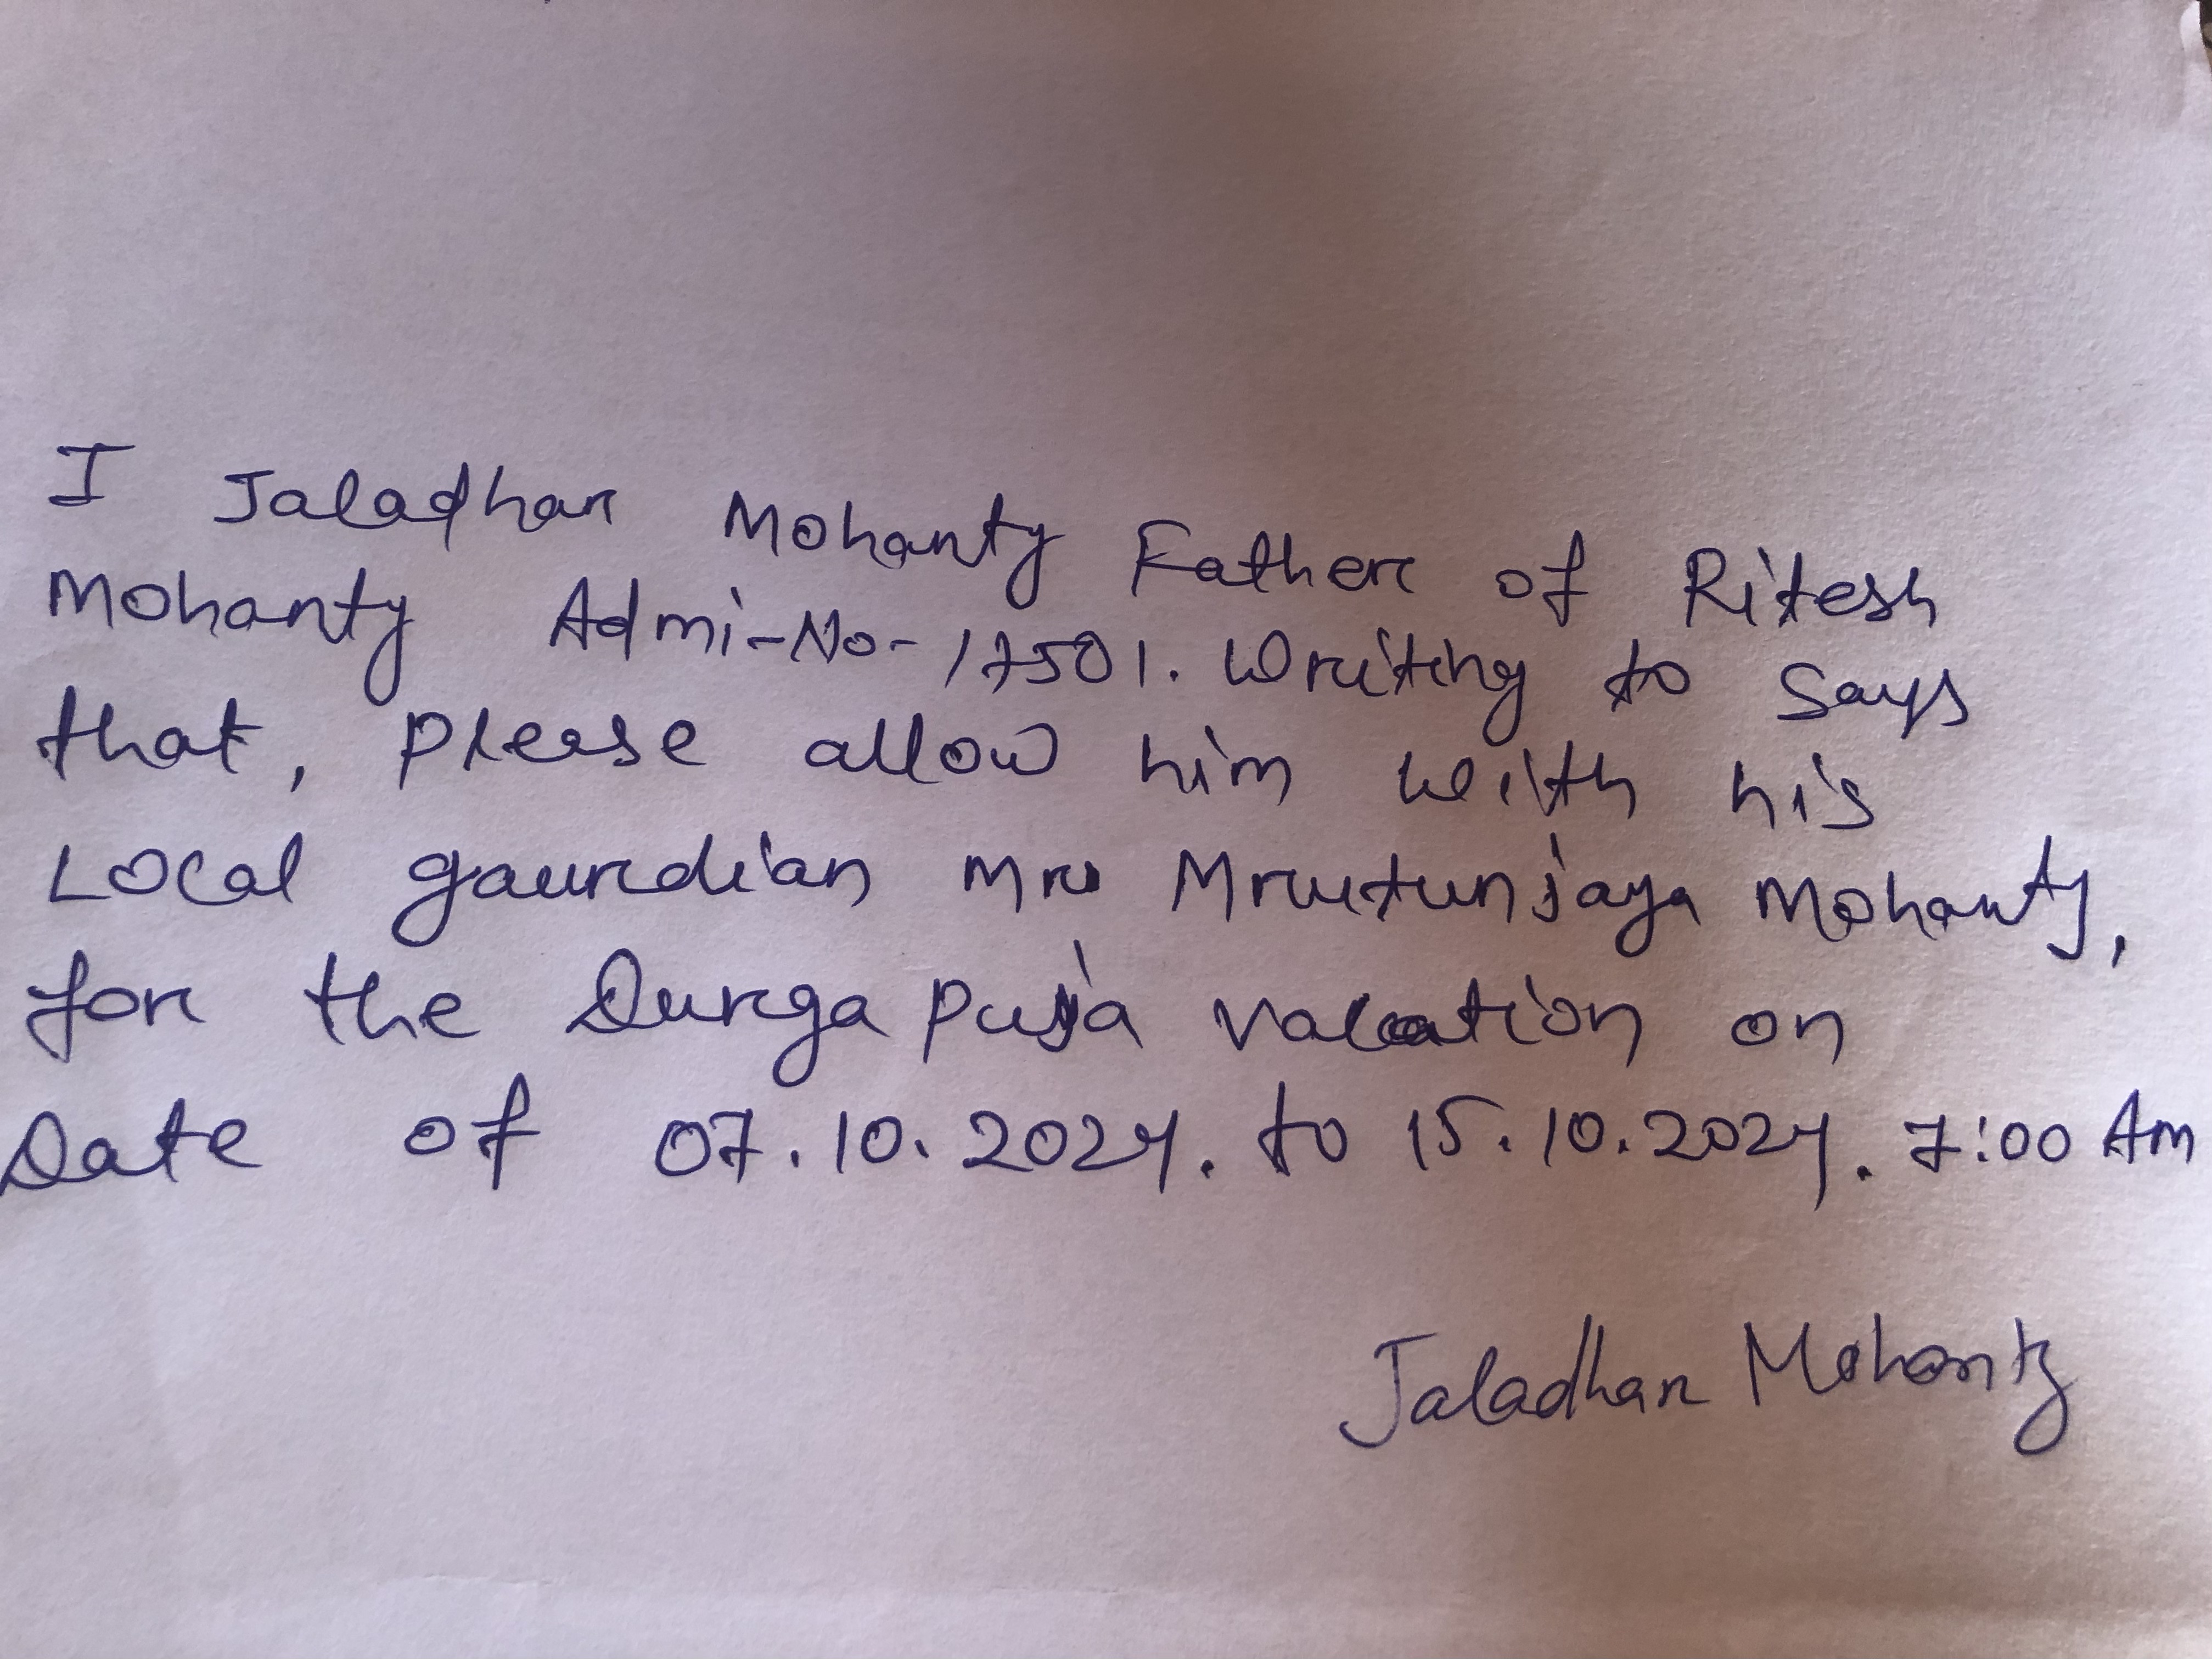 I Jaladhar Mohanty Father of Ritesh
Mohanty Admi-No-17501. Writing to Says
that, please allow him with his
Local gaurdian Mr Mrutunjaya Mohanty,
for the Durga Puja vacation on
Date of 07.10.2024. to 15.10.2024. 7:00 Am
Jaladhar Mohanty